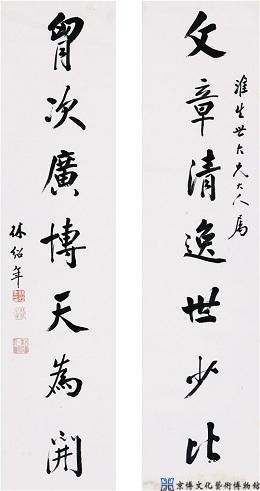 文章清逸世少比
淮生世大兄大人属
胷次廣博天為開
林紹年
京博文化藝術博物館